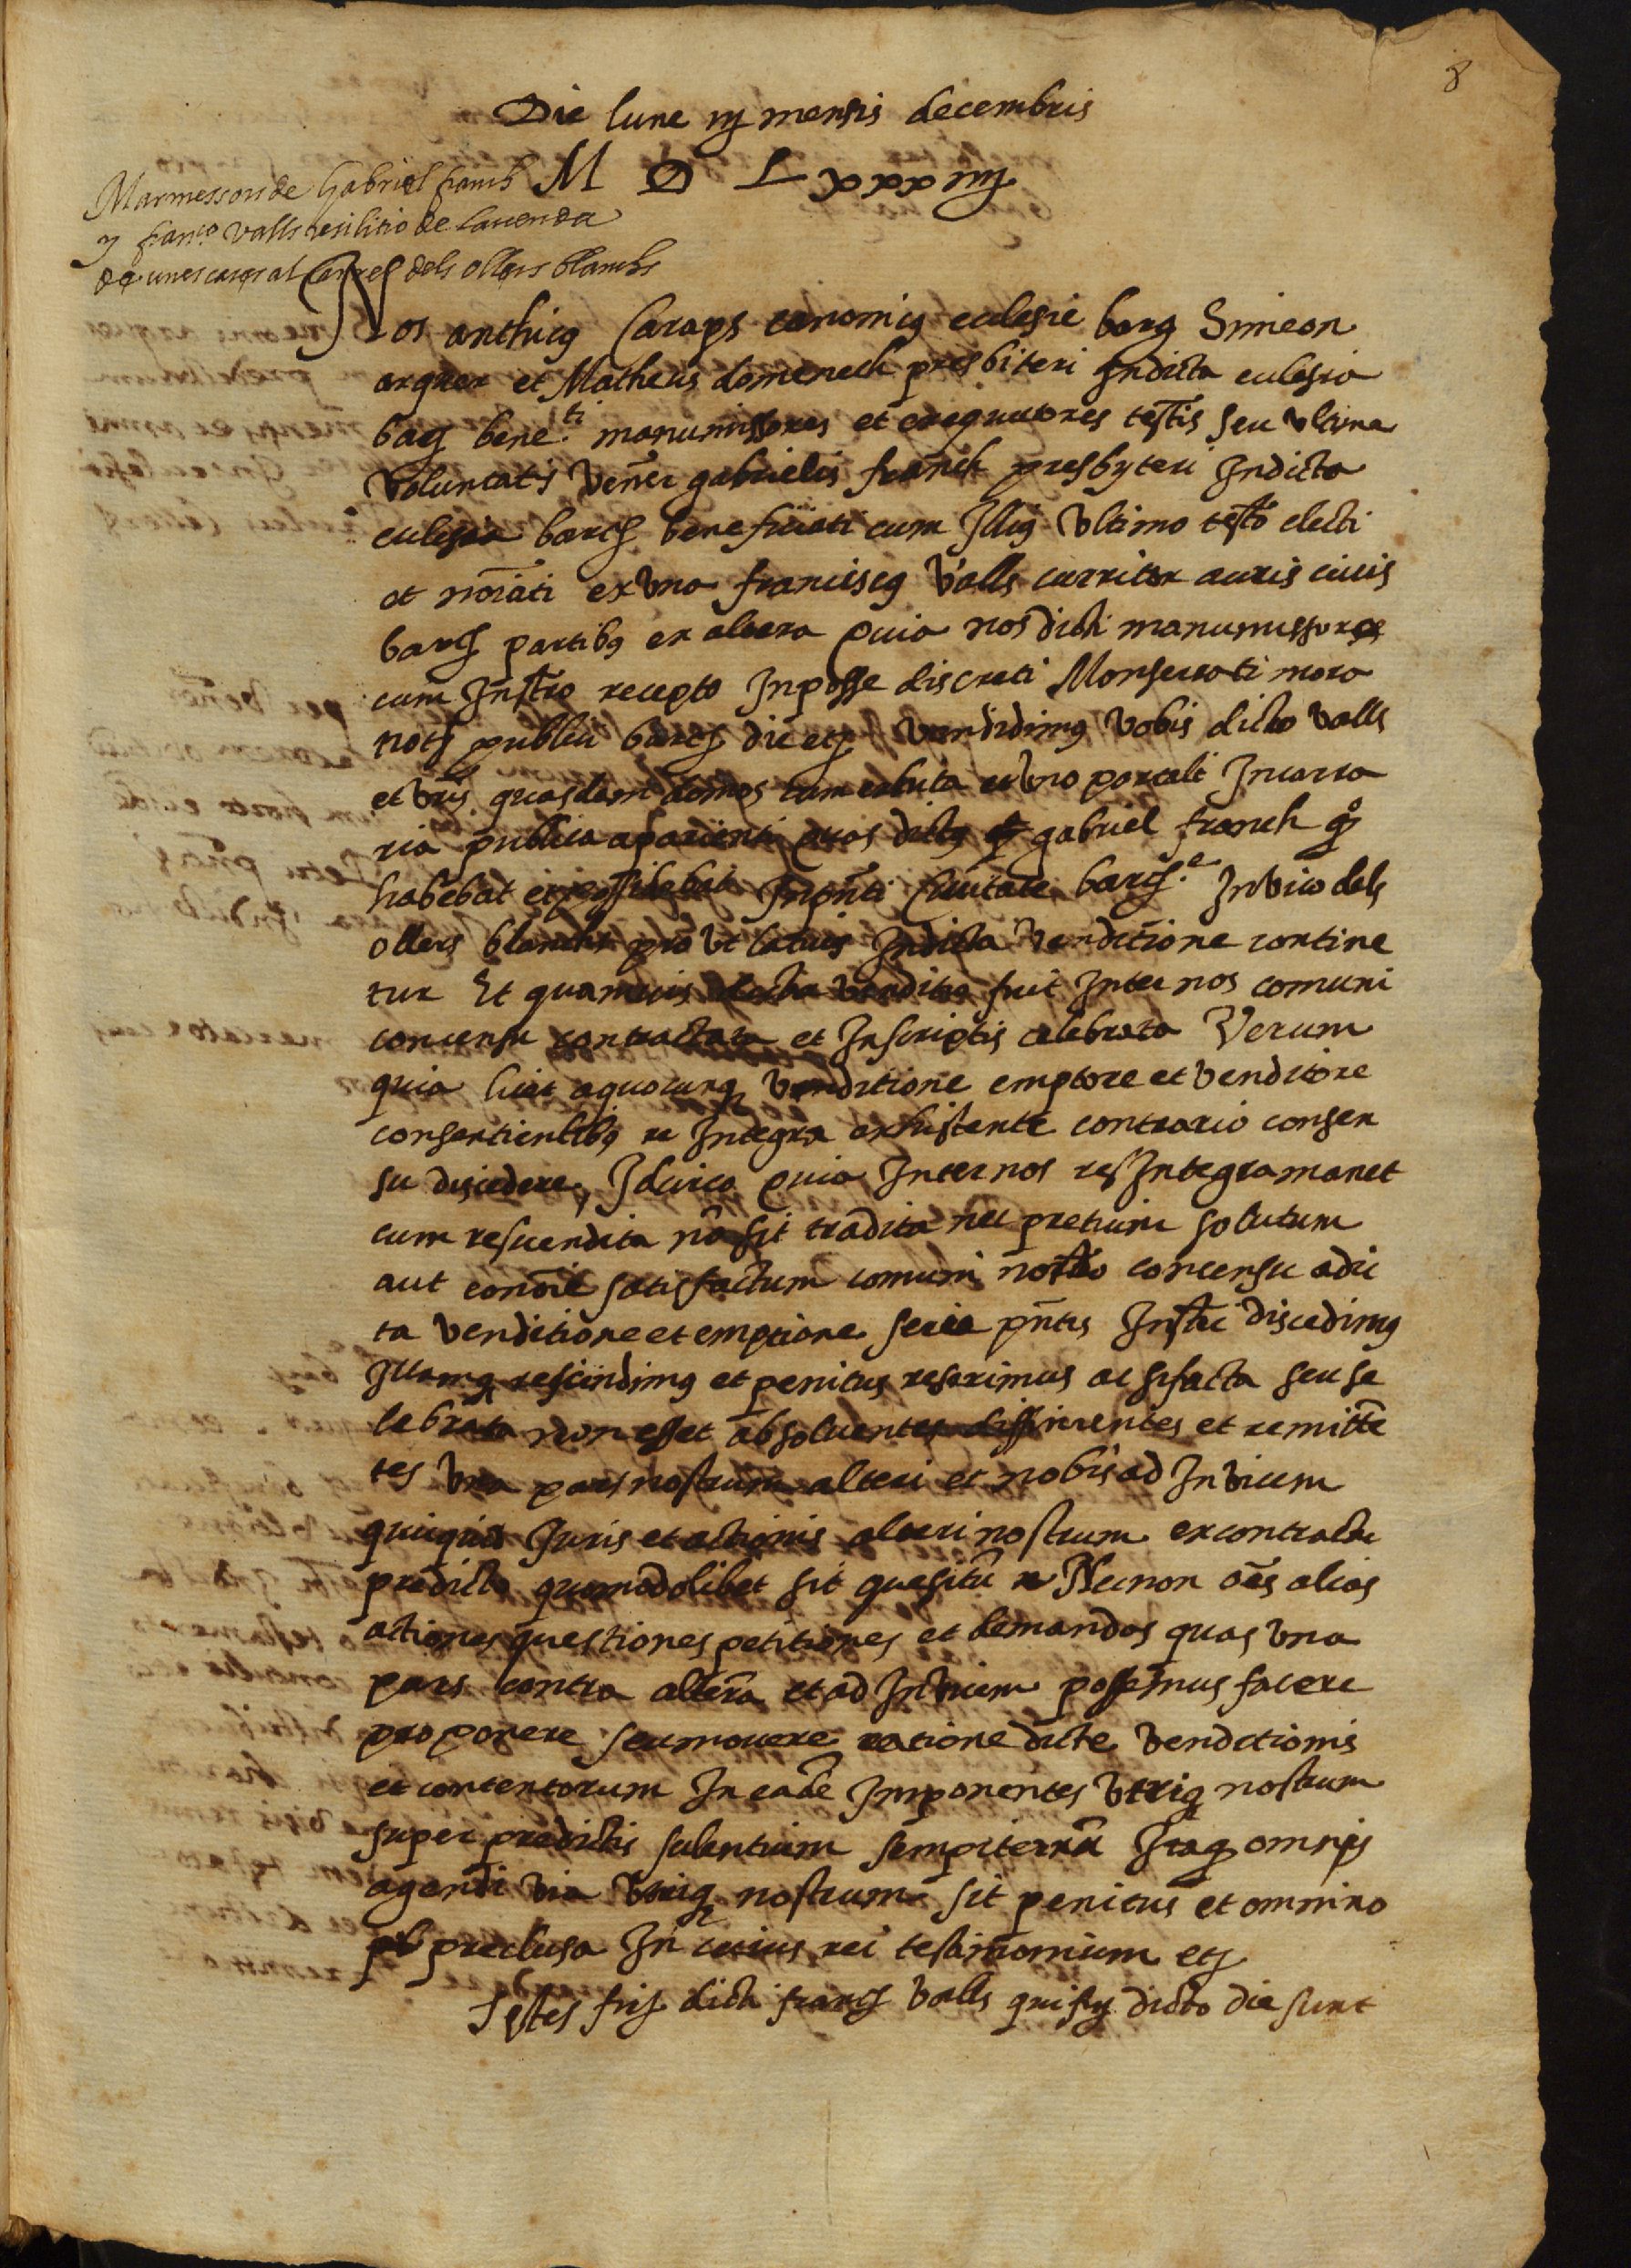 8
Die lune iij mensis decembris
M D Lxxxiiij
Marmessors de Gabriel franch
y franco valls resilitio de la venda
de unes cases al carrer dels ollers blanchs
Nos anthicus canonicus ecclesie barc Simeon
arquer et Matheus domenech presbiteri In dicta ecclesia
barc bene.ti manumissores et exequutores testis seu ultime
voluntatis vener gabrielis franch presbyteri In dicta
ecclesia barc beneficiati cum Illius ultimo testo electi
et noiati ex una franciscus valls curritor auris civis
barc partibus ex altera Quia nos dicti manumissores
cum Instro recepto In posse discreti Monserrati mora
not publici barc die etc vendidimus vobis dicto valls
et vris quasdam domos cum exhitu ex uno portali In carra
ria publica aparienti quas dictus gabriel franch qo
habebat et possidebat In pnti civitate barc.e In vico dels
ollers blanchs pro ut latius In dicta venditione contine
tur Et quamvis dicta venditio fuit Inter nos comuni
concensu contractata et Inscriptis celebrata Verum
quia licet a quocunq venditione emptore et venditore
consentientibus re Integra exhistente contrario consen
su discedere, Idcirco quia Inter nos res Integra manet
cum res vendita no sit tradita nec pretium solutum
aut eonoie satisfactum comuni nostro concensu a dic
ta venditione et emptione serie pntis Instri discedimus
Illamq rescindimus et penitus reserimus ac si facta seu se
lebrata non esset absolventes diffinientes et remitte
tes una pars nostrum alteri et nobis ad Invicem
quicquid Juris et actionis alteri nostrum ex contractu
predicto quomodolibet sit quesitu Necnon oes alias
actiones questiones petitiones et demandas quas una
pars contra altera et ad Invicem possemus facere
proponere seu movere ratione dicte venditionis
et contentorum In eade Imponentes utriq nostrum
super predictis silentium sempiternu Itaq omnis
agendi via utriq nostrum sit penitus et omnino
preclusa In cuius rei testimonium etc
Testes fir dicti franc valls qui fir dicto die sunt